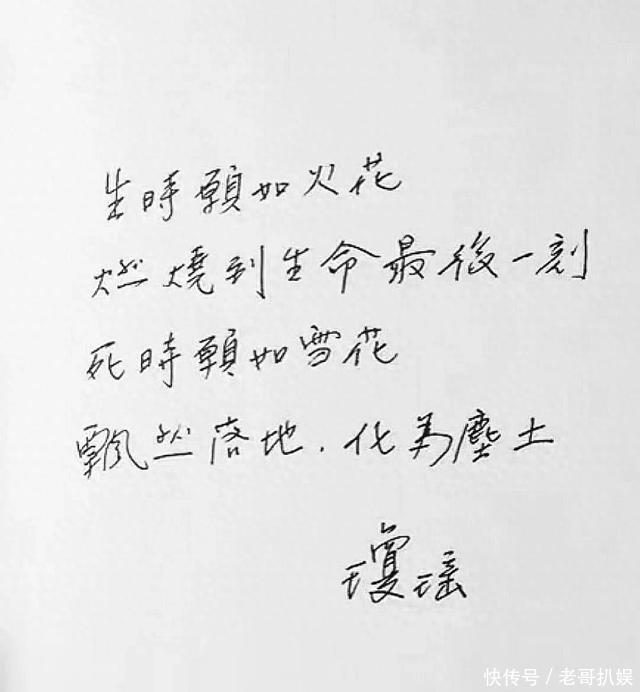 生時願如火花
燃燒到生命最後一刻
死時願如雪花
飄然落地．化為塵土
瓊瑤
快传号／老哥扒娱